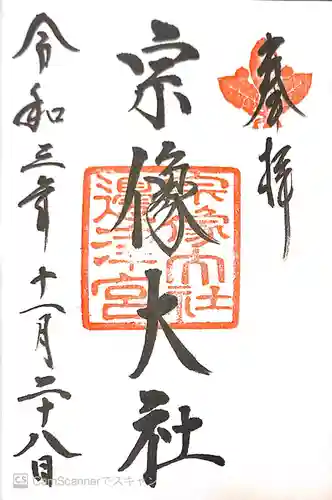 奉拝
宗像大社
宗像大社
邊津宮
令和三年十一月二十八日
CS CamScannerでスキャン